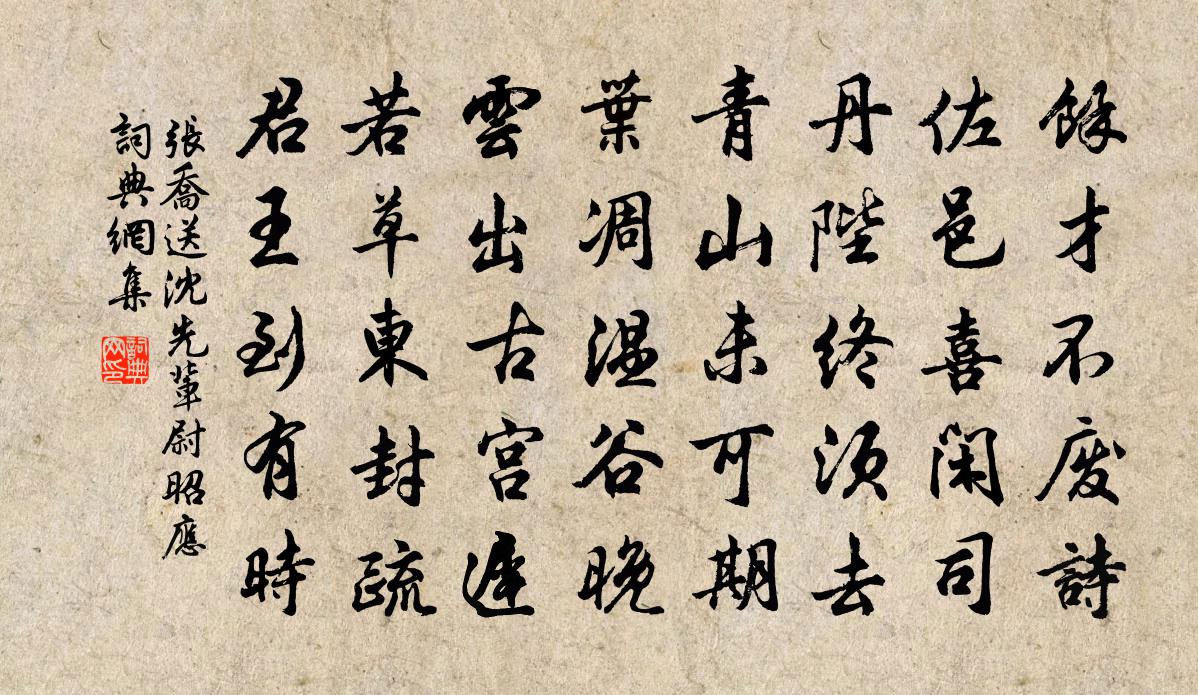 餘才不废詩
佐邑喜閑司
丹陛終須去
青山未可期
葉凋溫谷晚
雲出古宮遲
若草東封疏
君王到有時
張喬送沈先輩尉昭應
詞典網集
詞典网印